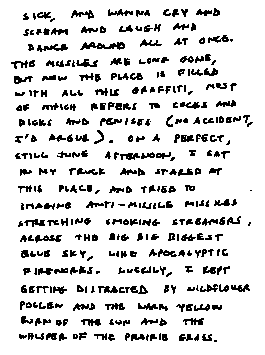 SICK, AND WANNA CRY AND
SCREAM AND LAUGH AND
DANCE AROUND ALL AT ONCE.
THE MISSILES ARE LONG GONE,
BUT NOW THE PLACE IS FILLED
WITH ALL THIS GRAFFITI, MOST
OF WHICH REFERS TO COCKS AND
DICKS AND PENISES (NO ACCIDENT,
I'D ARGUE). ON A PERFECT,
STILL JUNE AFTERNOON, I SAT
IN MY TRUCK AND STARED AT
THIS PLACE, AND TRIED TO
IMAGINE ANTI-MISSILE MISSILES
STRETCHING SMOKING STREAMERS,
ACROSS THE BIG BIG BIGGEST
BLUE SKY, LIKE APOCALYPTIC
FIREWORKS. LUCKILY, I KEPT
GETTING DISTRACTED BY WILDFLOWER
POLLEN AND THE WARM YELLOW
BURN OF THE SUN AND THE
WHISPER OF THE PRAIRIE GRASS.